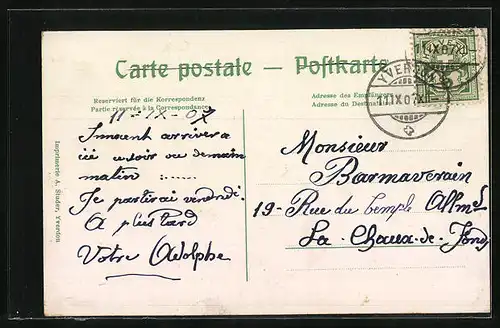 Carte postale — Postkarte
Reserviert für die Korrespondenz
Partie réservée à la Correspondance
Adresse des Empfängers
Adresse du Destinataire
11-IX-07
Innocent arrivera
ici ce soir ou demain
matin
Je partirai vendredi.
A plus tard
Votre Adolphe
Monsieur
Barmaverain
19-Rue du Temple Allmd
La-Chaux-de-Fonds
YVERDON
11.IX.07.XI
11.IX.07.XI
Imprimerie A. Studer, Yverdon